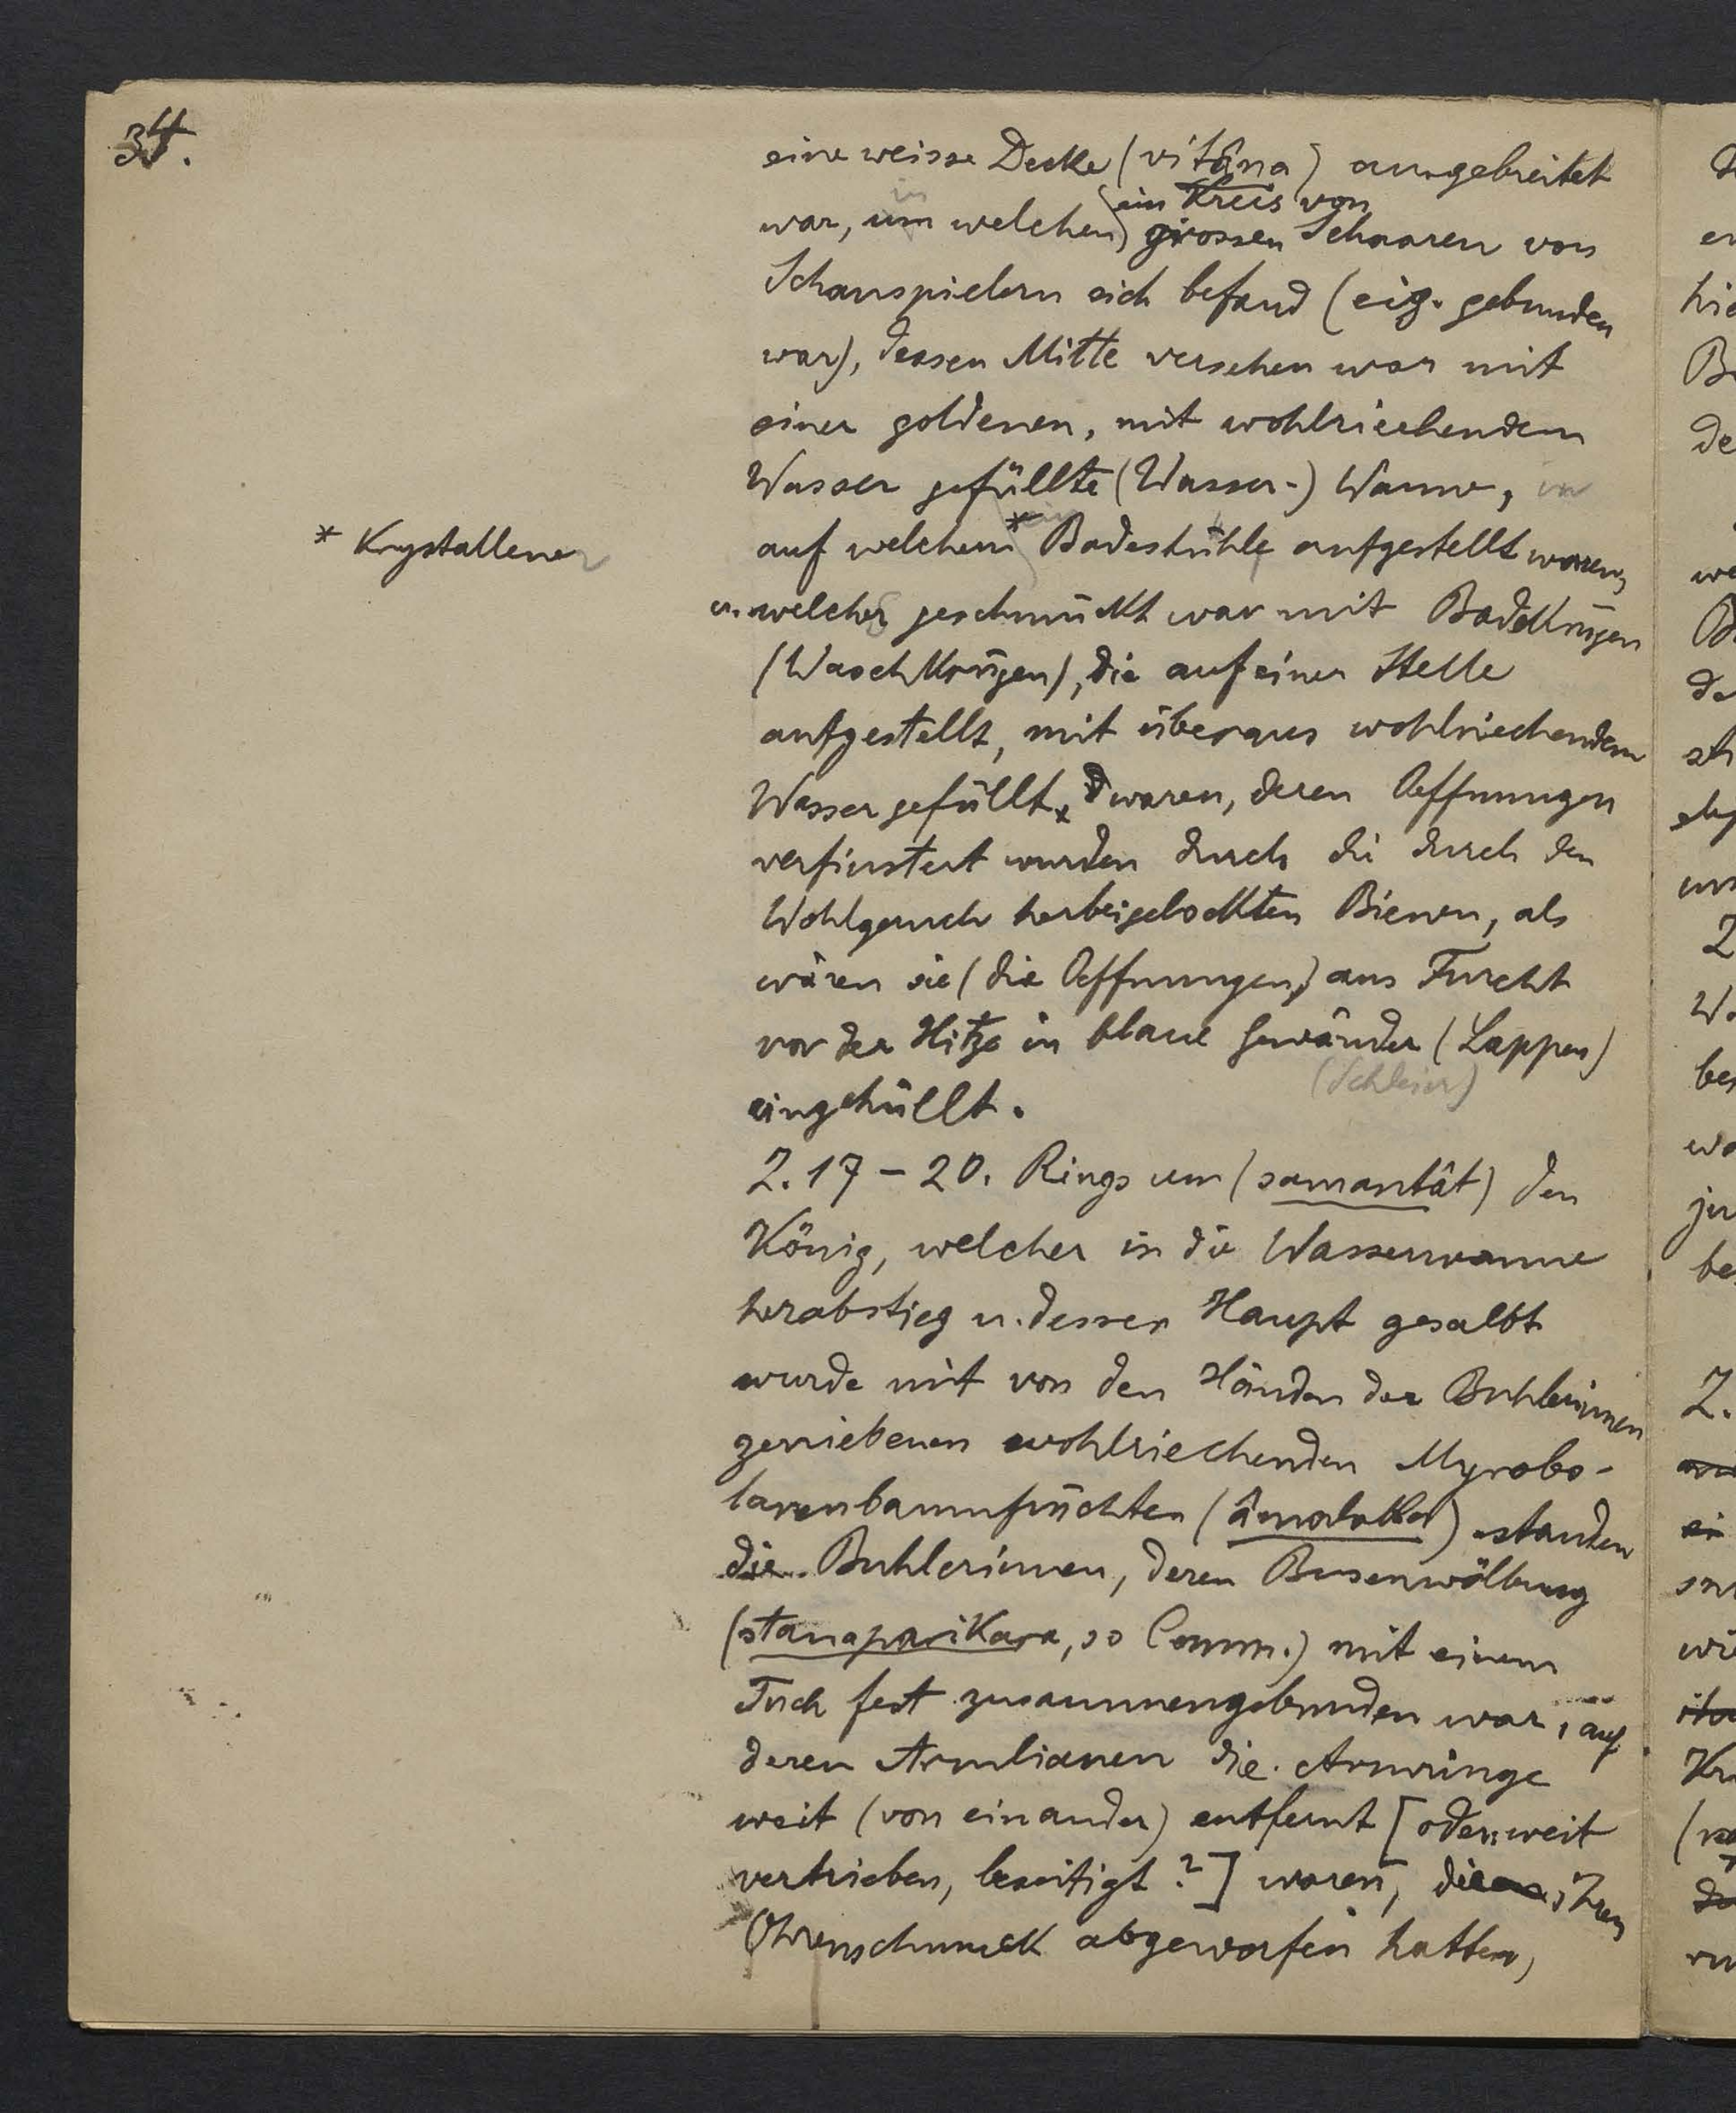 34.
eine weisse Decke (vitâna) ausgebreitet
ein Kreis von
war, um welchen grossen Schaaren von
in
Schauspielern sich befand (eig. gebunden
war), dessen Mitte versehen war mit
einer goldenen, mit wohlriechendem
Wasser gefüllte (Wasser-) Wanne,
auf welchem * Badestühle aufgestellt waren,
* Krystallener
u. welcher geschmückt war mit Badekrügen
(Waschkrügen), die auf einer Stelle
aufgestellt, mit überaus wohlriechendem
Wasser gefüllt waren, deren Oeffnungen
verfinstert wurden durch die durch den
Wohlgeruch herbeigelockten Bienen, als
wären sie (die Oeffnungen) aus Furcht
vor der Hitze in blaue Gewänder (Lappen)
(Schleier)
eingehüllt.
Z. 17 – 20. Rings um (samantât) den
König, welcher in die Wasserwanne
herabstieg u. dessen Haupt gesalbt
wurde mit von den Händen der Buhlerinnen
geriebenen wohlriechenden Myrobo-
lanenbaumfrüchten (âmalaka) standen
die Buhlerinnen, deren Busenwölbung
(stanaparikara, so Comm.) mit einem
Tuch fest zusammengebunden war, auf
deren Armlianen die Armringe
weit (von einander) entfernt [oder: weit
vertrieben, beseitigt?] waren, die ihren
Ohrenschmuck abgeworfen hatten,